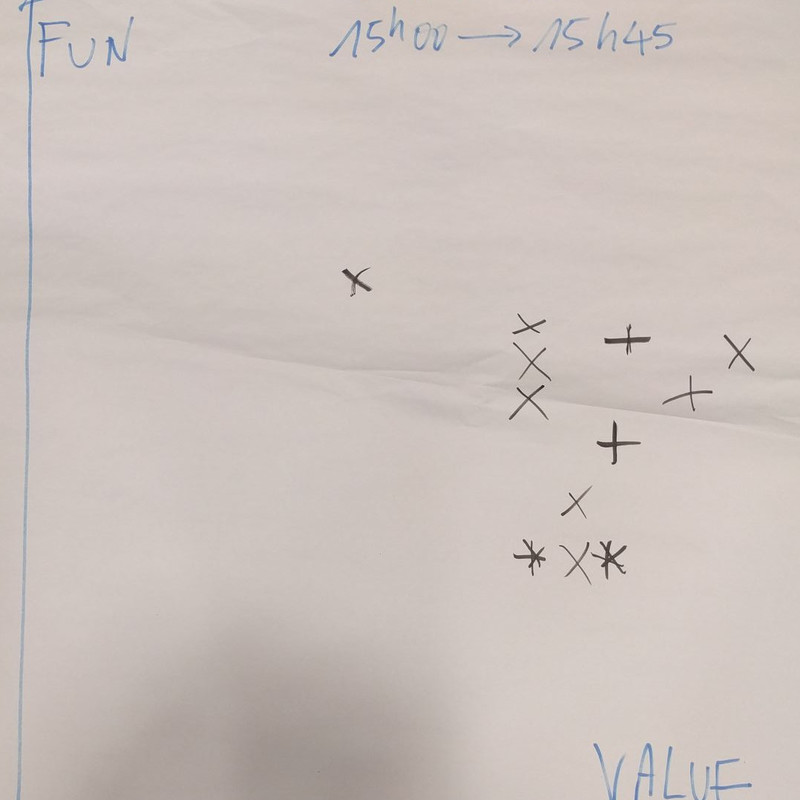 FUN
15h00 → 15h45
VALUE